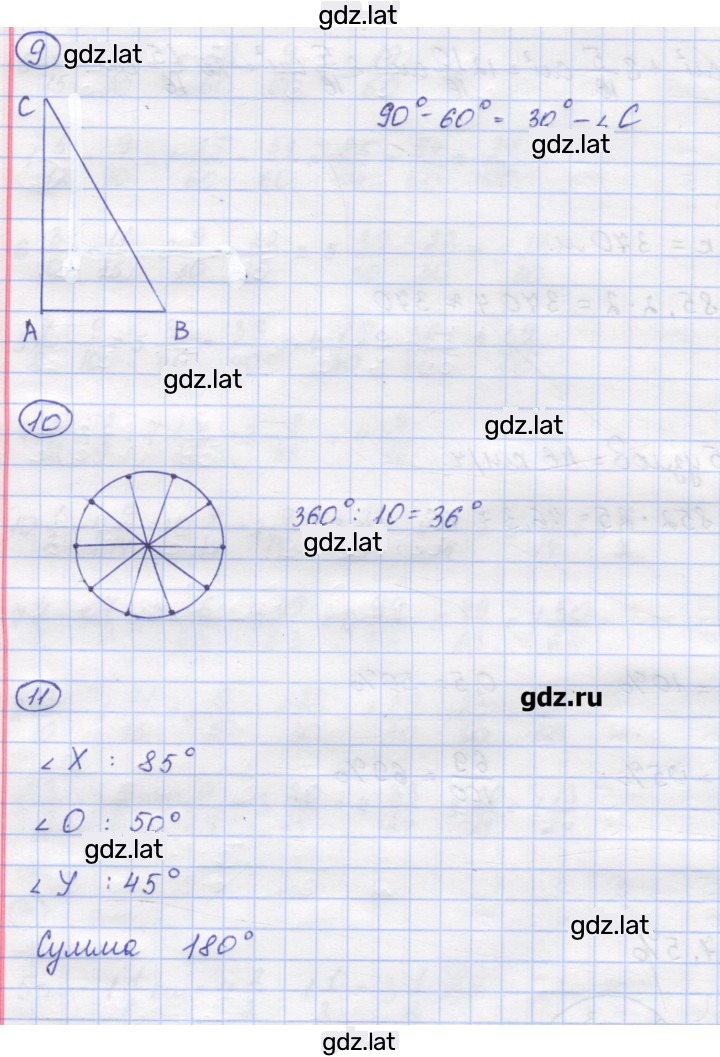 gdz.lat
9
gdz.lat
C
90° - 60° = 30° - ∠ C
gdz.lat
A
B
gdz.lat
10
gdz.lat
360° : 10 = 36°
gdz.lat
11
gdz.ru
∠ X : 85°
∠ O : 50°
gdz.lat
∠ У : 45°
gdz.lat
Сумма 180°
gdz.lat